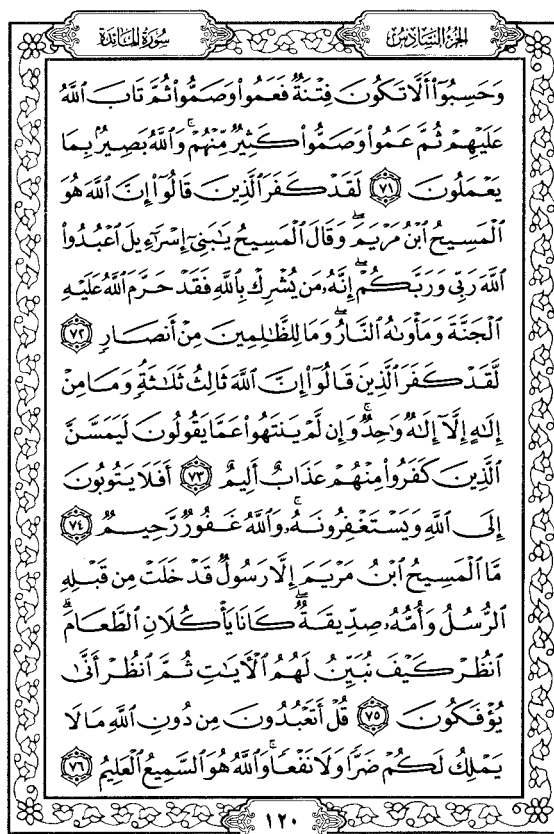 سُورَةُ المَائدة
الجزء السَّادِسُ
وَحَسِبُوٓاْ أَلَّا تَكُونَ فِتۡنَةٞ فَعَمُواْ وَصَمُّواْ ثُمَّ تَابَ ٱللَّهُ
عَلَيۡهِمۡ ثُمَّ عَمُواْ وَصَمُّواْ كَثِيرٞ مِّنۡهُمۡۚ وَٱللَّهُ بَصِيرُۢ بِمَا
يَعۡمَلُونَ ٧١ لَقَدۡ كَفَرَ ٱلَّذِينَ قَالُوٓاْ إِنَّ ٱللَّهَ هُوَ
ٱلۡمَسِيحُ ٱبۡنُ مَرۡيَمَۖ وَقَالَ ٱلۡمَسِيحُ يَٰبَنِيٓ إِسۡرَٰٓءِيلَ ٱعۡبُدُواْ
ٱللَّهَ رَبِّي وَرَبَّكُمۡۖ إِنَّهُۥ مَن يُشۡرِكۡ بِٱللَّهِ فَقَدۡ حَرَّمَ ٱللَّهُ عَلَيۡهِ
ٱلۡجَنَّةَ وَمَأۡوَىٰهُ ٱلنَّارُۖ وَمَا لِلظَّٰلِمِينَ مِنۡ أَنصَارٖ ٧٢
لَّقَدۡ كَفَرَ ٱلَّذِينَ قَالُوٓاْ إِنَّ ٱللَّهَ ثَالِثُ ثَلَٰثَةٖۘ وَمَا مِنۡ
إِلَٰهٍ إِلَّآ إِلَٰهٞ وَٰحِدٞۚ وَإِن لَّمۡ يَنتَهُواْ عَمَّا يَقُولُونَ لَيَمَسَّنَّ
ٱلَّذِينَ كَفَرُواْ مِنۡهُمۡ عَذَابٌ أَلِيمٌ ٧٣ أَفَلَا يَتُوبُونَ
إِلَى ٱللَّهِ وَيَسۡتَغۡفِرُونَهُۥۚ وَٱللَّهُ غَفُورٞ رَّحِيمٞ ٧٤
مَّا ٱلۡمَسِيحُ ٱبۡنُ مَرۡيَمَ إِلَّا رَسُولٞ قَدۡ خَلَتۡ مِن قَبۡلِهِ
ٱلرُّسُلُ وَأُمُّهُۥ صِدِّيقَةٞۖ كَانَا يَأۡكُلَانِ ٱلطَّعَامَۗ
ٱنظُرۡ كَيۡفَ نُبَيِّنُ لَهُمُ ٱلۡأٓيَٰتِ ثُمَّ ٱنظُرۡ أَنَّىٰ
يُؤۡفَكُونَ ٧٥ قُلۡ أَتَعۡبُدُونَ مِن دُونِ ٱللَّهِ مَا لَا
يَمۡلِكُ لَكُمۡ ضَرّٗا وَلَا نَفۡعٗاۚ وَٱللَّهُ هُوَ ٱلسَّمِيعُ ٱلۡعَلِيمُ ٧٦
١٢٠